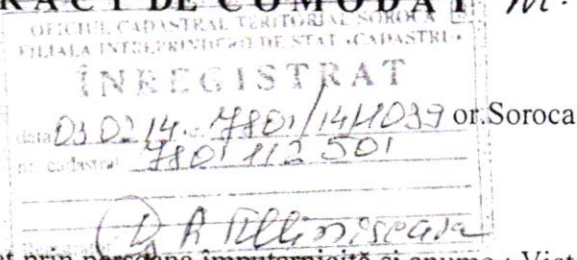 RACT DE COMODAT
OFICIUL CADASTRAL TERITORIAL SOROCA
FILIALA ÎNTREPRINDERII DE STAT «CADASTRU»
ÎNREGISTRAT
data 03 02 14 7801/14/1039 or.Soroca
nr. cadastral 7801 112 501
at prin persoana împuternicită și anume : Vict